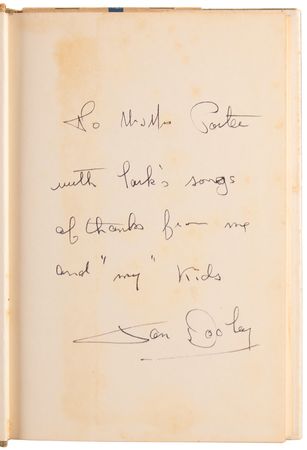 To Porter
with lark's songs
of thanks from me
and "my" Kids
Tom Dooley